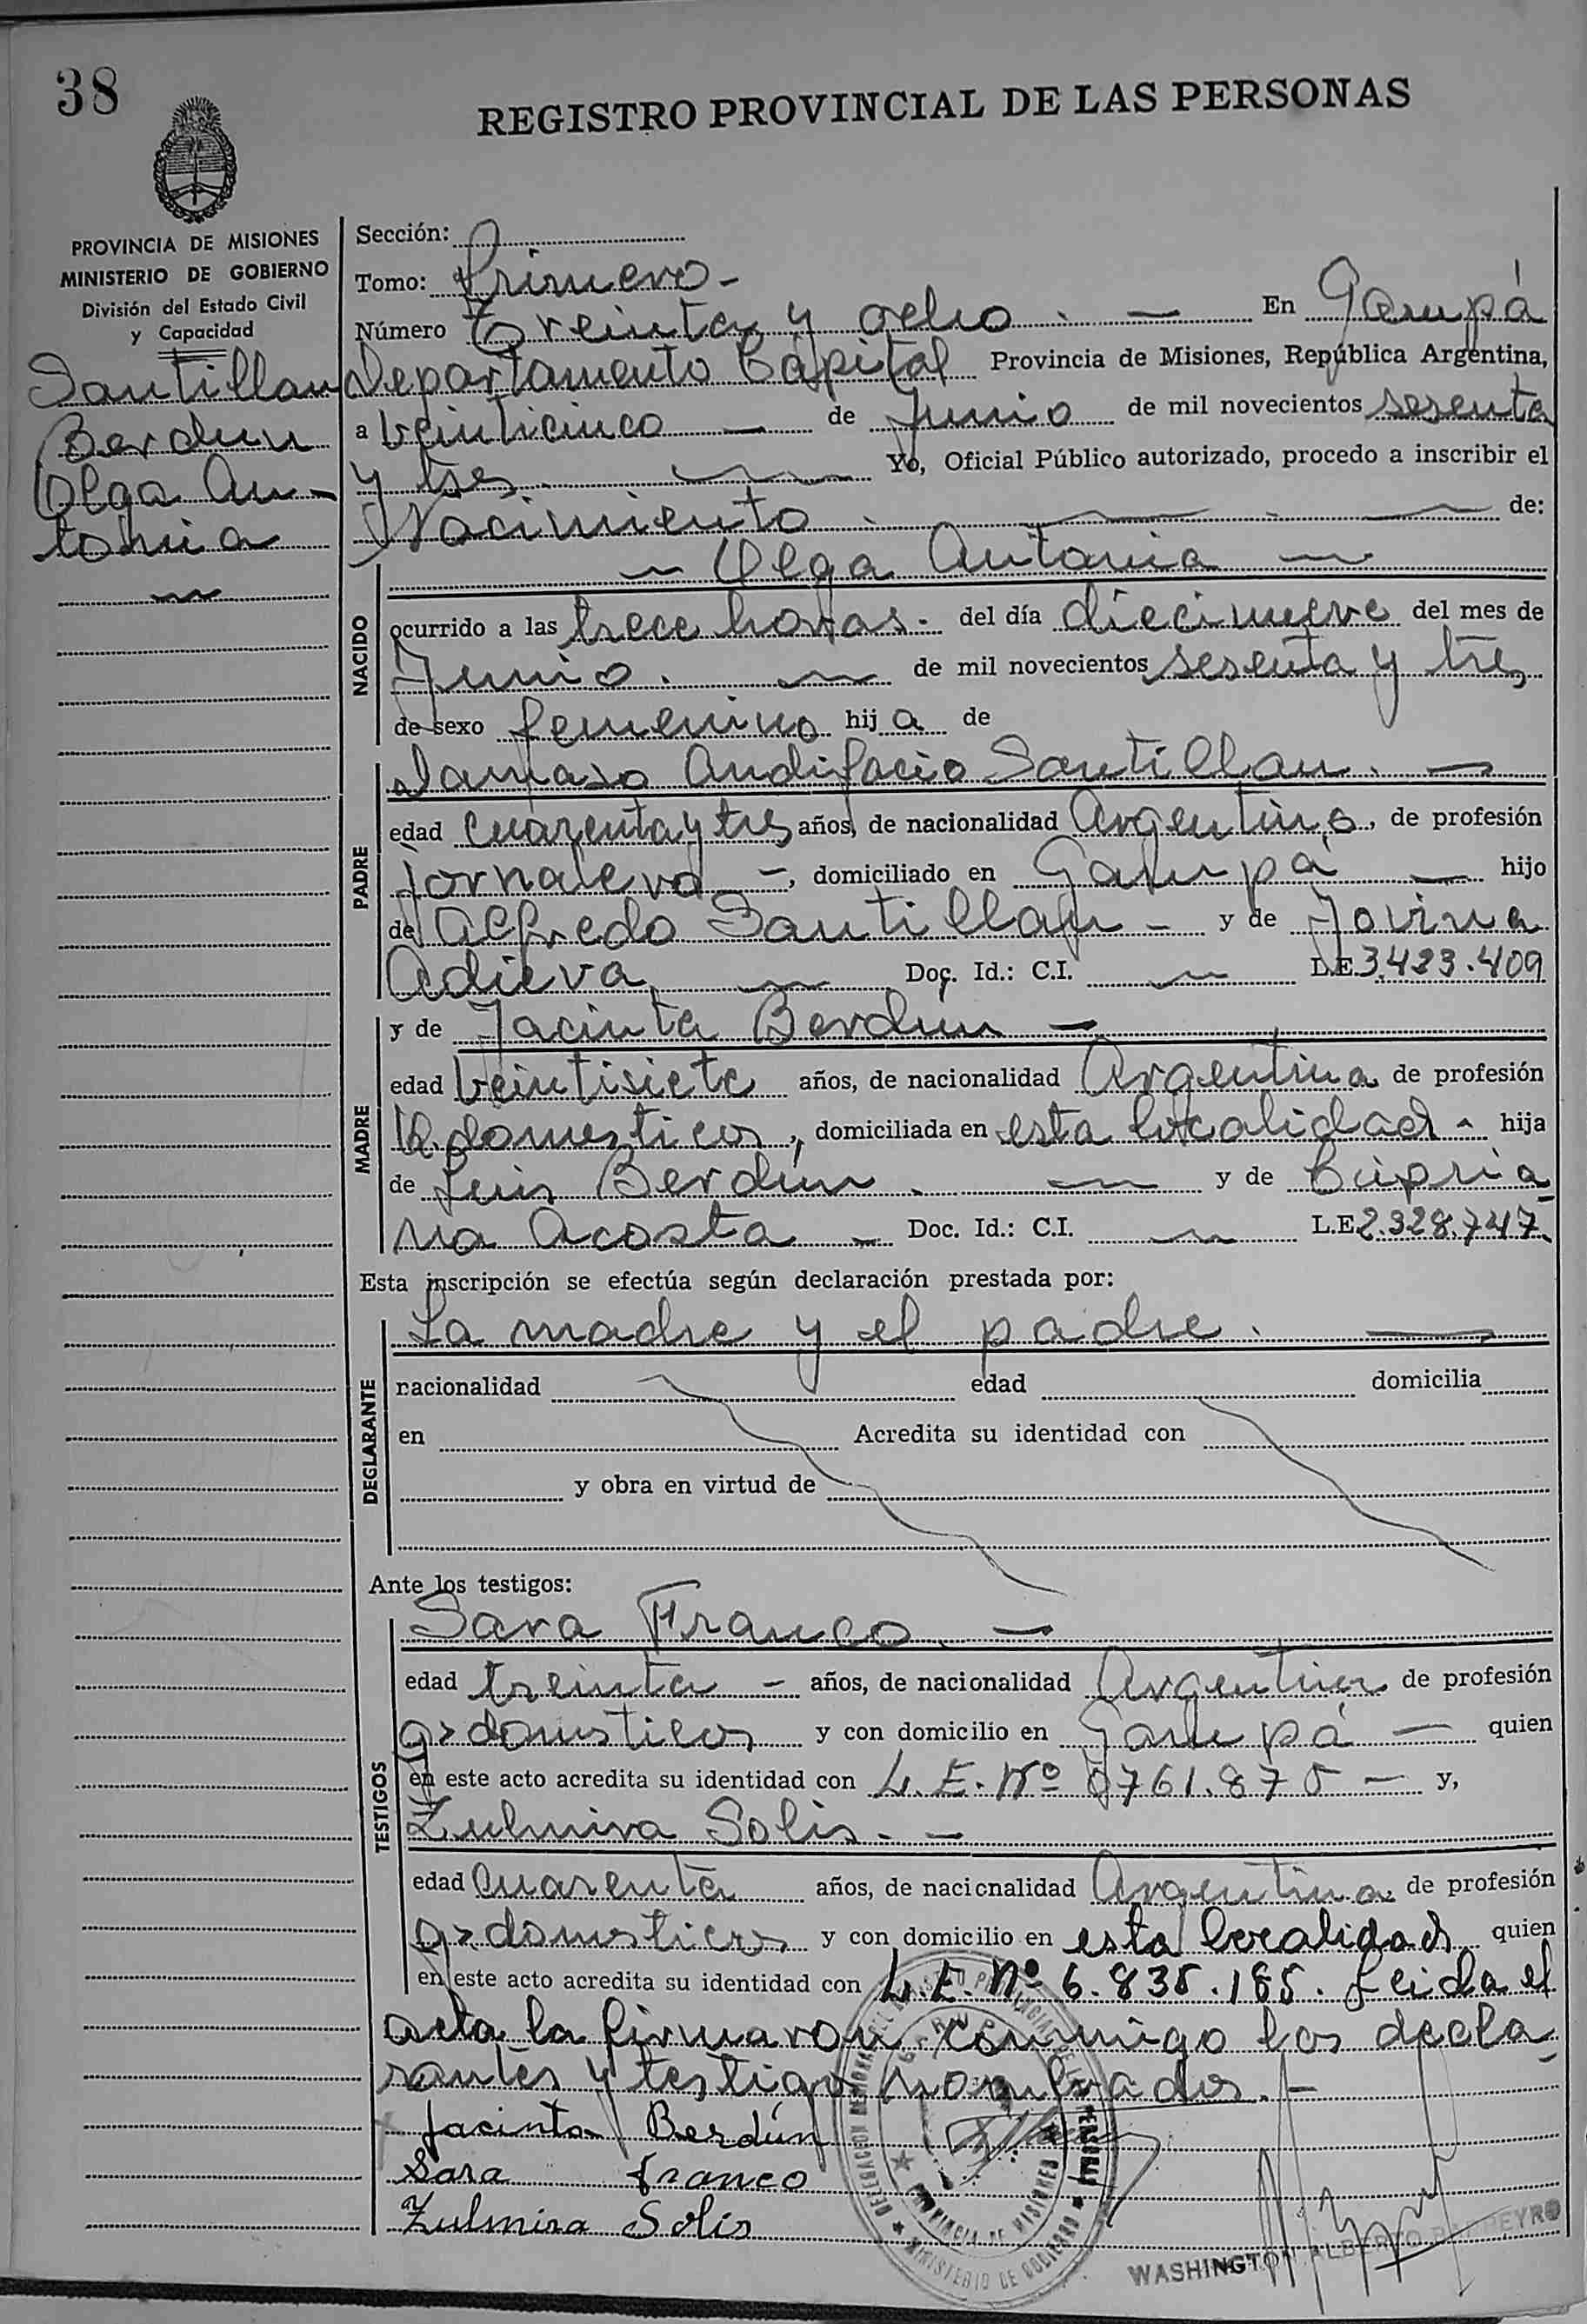 38
REGISTRO PROVINCIAL DE LAS PERSONAS
PROVINCIA DE MISIONES
MINISTERIO DE GOBIERNO
División del Estado Civil
y Capacidad
Santillan
Berdun
Olga An-
tonia
Sección:
Tomo: Primero -
Número Treinta y ocho. — En Garupá
Departamento Capital Provincia de Misiones, República Argentina,
a veinticinco — de Junio de mil novecientos sesenta
y tres. Yo, Oficial Público autorizado, procedo a inscribir el
Nacimiento. de:
NACIDO
Olga Antonia
ocurrido a las trece horas. del día diecinueve del mes de
Junio. de mil novecientos sesenta y tres
de sexo femenino hija de
PADRE
Damaso Santillan. —
edad cuarenta y tres años, de nacionalidad Argentino, de profesión
jornalero -, domiciliado en Garupá — hijo
de Alfredo Santillan - y de Jovina
Adieva Doc. Id.: C.I. — L.E. 3.423.409
MADRE
y de Jacinta Berdún —
edad veintisiete años, de nacionalidad Argentina de profesión
Q. domesticos, domiciliada en esta localidad - hija
de Luis Berdún. — y de Cipria
na Acosta - Doc. Id.: C.I. — L.E. 2.328.747.
Esta inscripción se efectúa según declaración prestada por:
DECLARANTE
La madre y el padre. —
nacionalidad edad domicilia
en Acredita su identidad con
y obra en virtud de
Ante los testigos:
TESTIGOS
Sara Franco. —
edad treinta - años, de nacionalidad Argentina de profesión
qs domesticos y con domicilio en Garupá — quien
en este acto acredita su identidad con L.E. Nº 761.875 — y,
Zulmira Solis. —
edad cuarenta años, de nacionalidad Argentina, de profesión
qs domesticos y con domicilio en esta localidad quien
en este acto acredita su identidad con L.E. Nº 6.835.185. Leida el
acta la firmaron conmigo los decla
rantes y testigos nombrados. —
Jacinta Berdún
Sara franco
Zulmira Solis
PROVINCIA DE MISIONES
MINISTERIO DE GOBIERNO
WASHINGTON ALBERTO BARREYRO